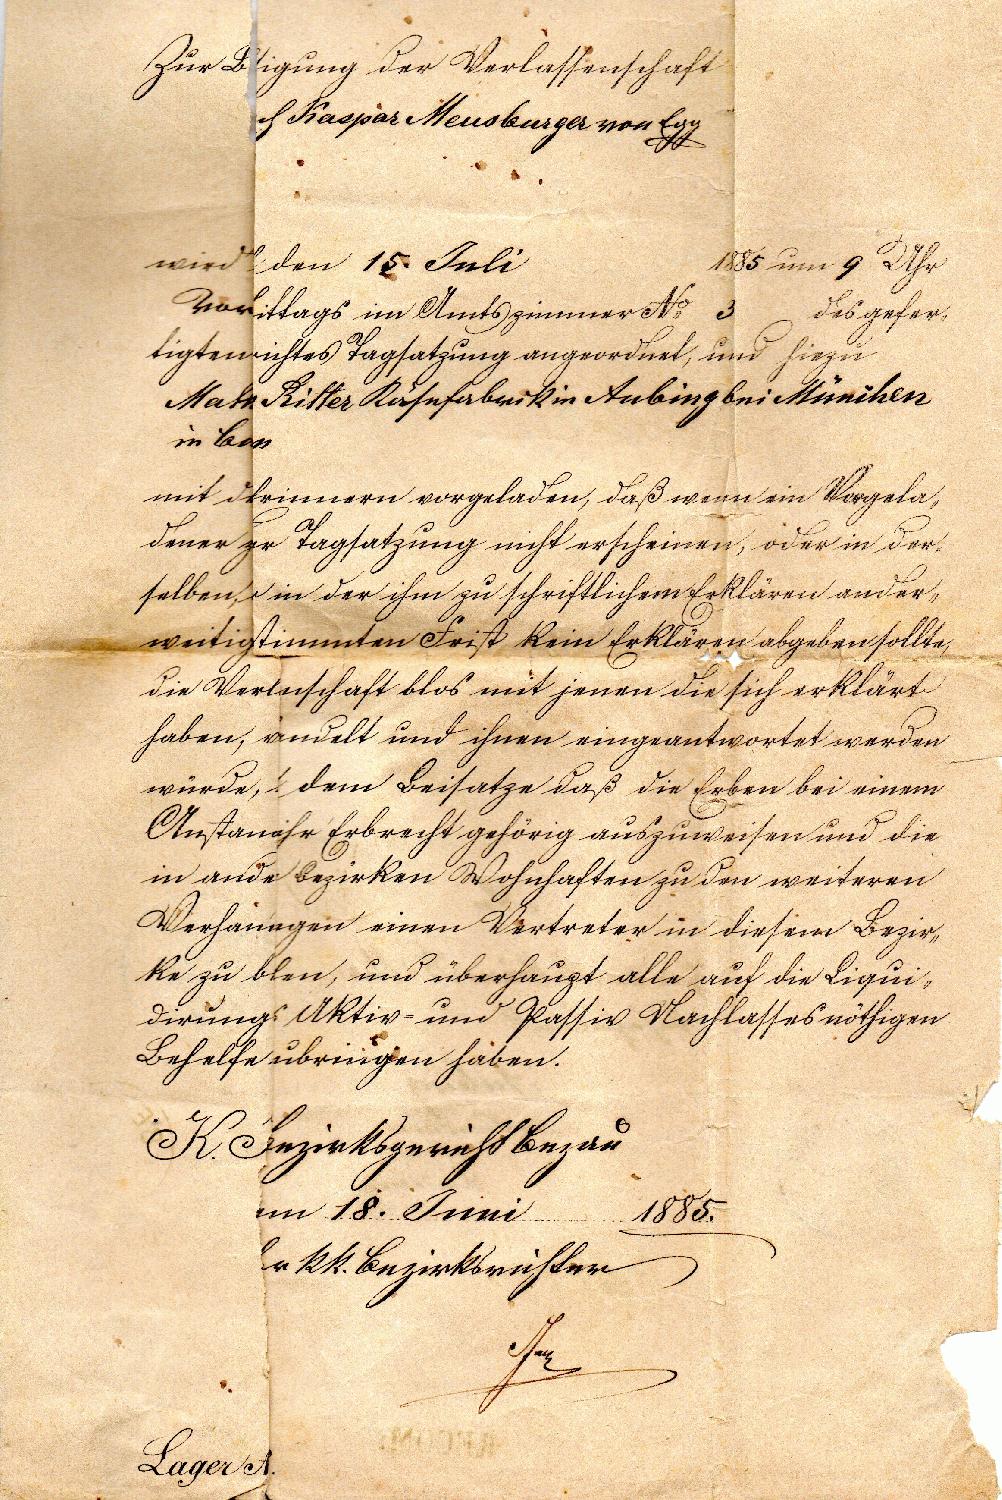 Zur B igung der Verlassenschaft
h Kaspar Meusburger von Egg
wird den 15. Juli 1885 um 9 Uhr
Vor ittags im Amtszimmer No 3 des gefer-
tigten richtes Tagsatzung angeordnet, und hiezu
Ritter Käsefabrik in Aubing bei München
in
mit d Erinnern vorgeladen, daß wenn ein Vorgela-
dener z r Tagsatzung nicht erscheinen, oder in der-
selben, r in der ihm zu schriftlichem Erklären ander-
weitig stimmten Frist kein Erklären abgeben sollte,
die Verl nschaft blos mit jenen die sich erklärt
haben, andelt und ihnen eingeantwortet werden
würde, t dem Beisatze daß die Erben bei einem
Anstan ihr Erbrecht gehörig auszuweisen und die
in ande Bezirken Wohnhaften zu den weiteren
Verhan ngen einen Vertreter in diesem Bezir-
ke zu b len, und überhaupt alle auf die Liqui-
dirung s Aktiv- und Passiv Nachlasses nöthigen
Behelfe ubringen haben.
K. Bezirksgericht Bezau
am 18. Juni 1885.
r kk. Bezirksrichter
Lager A.